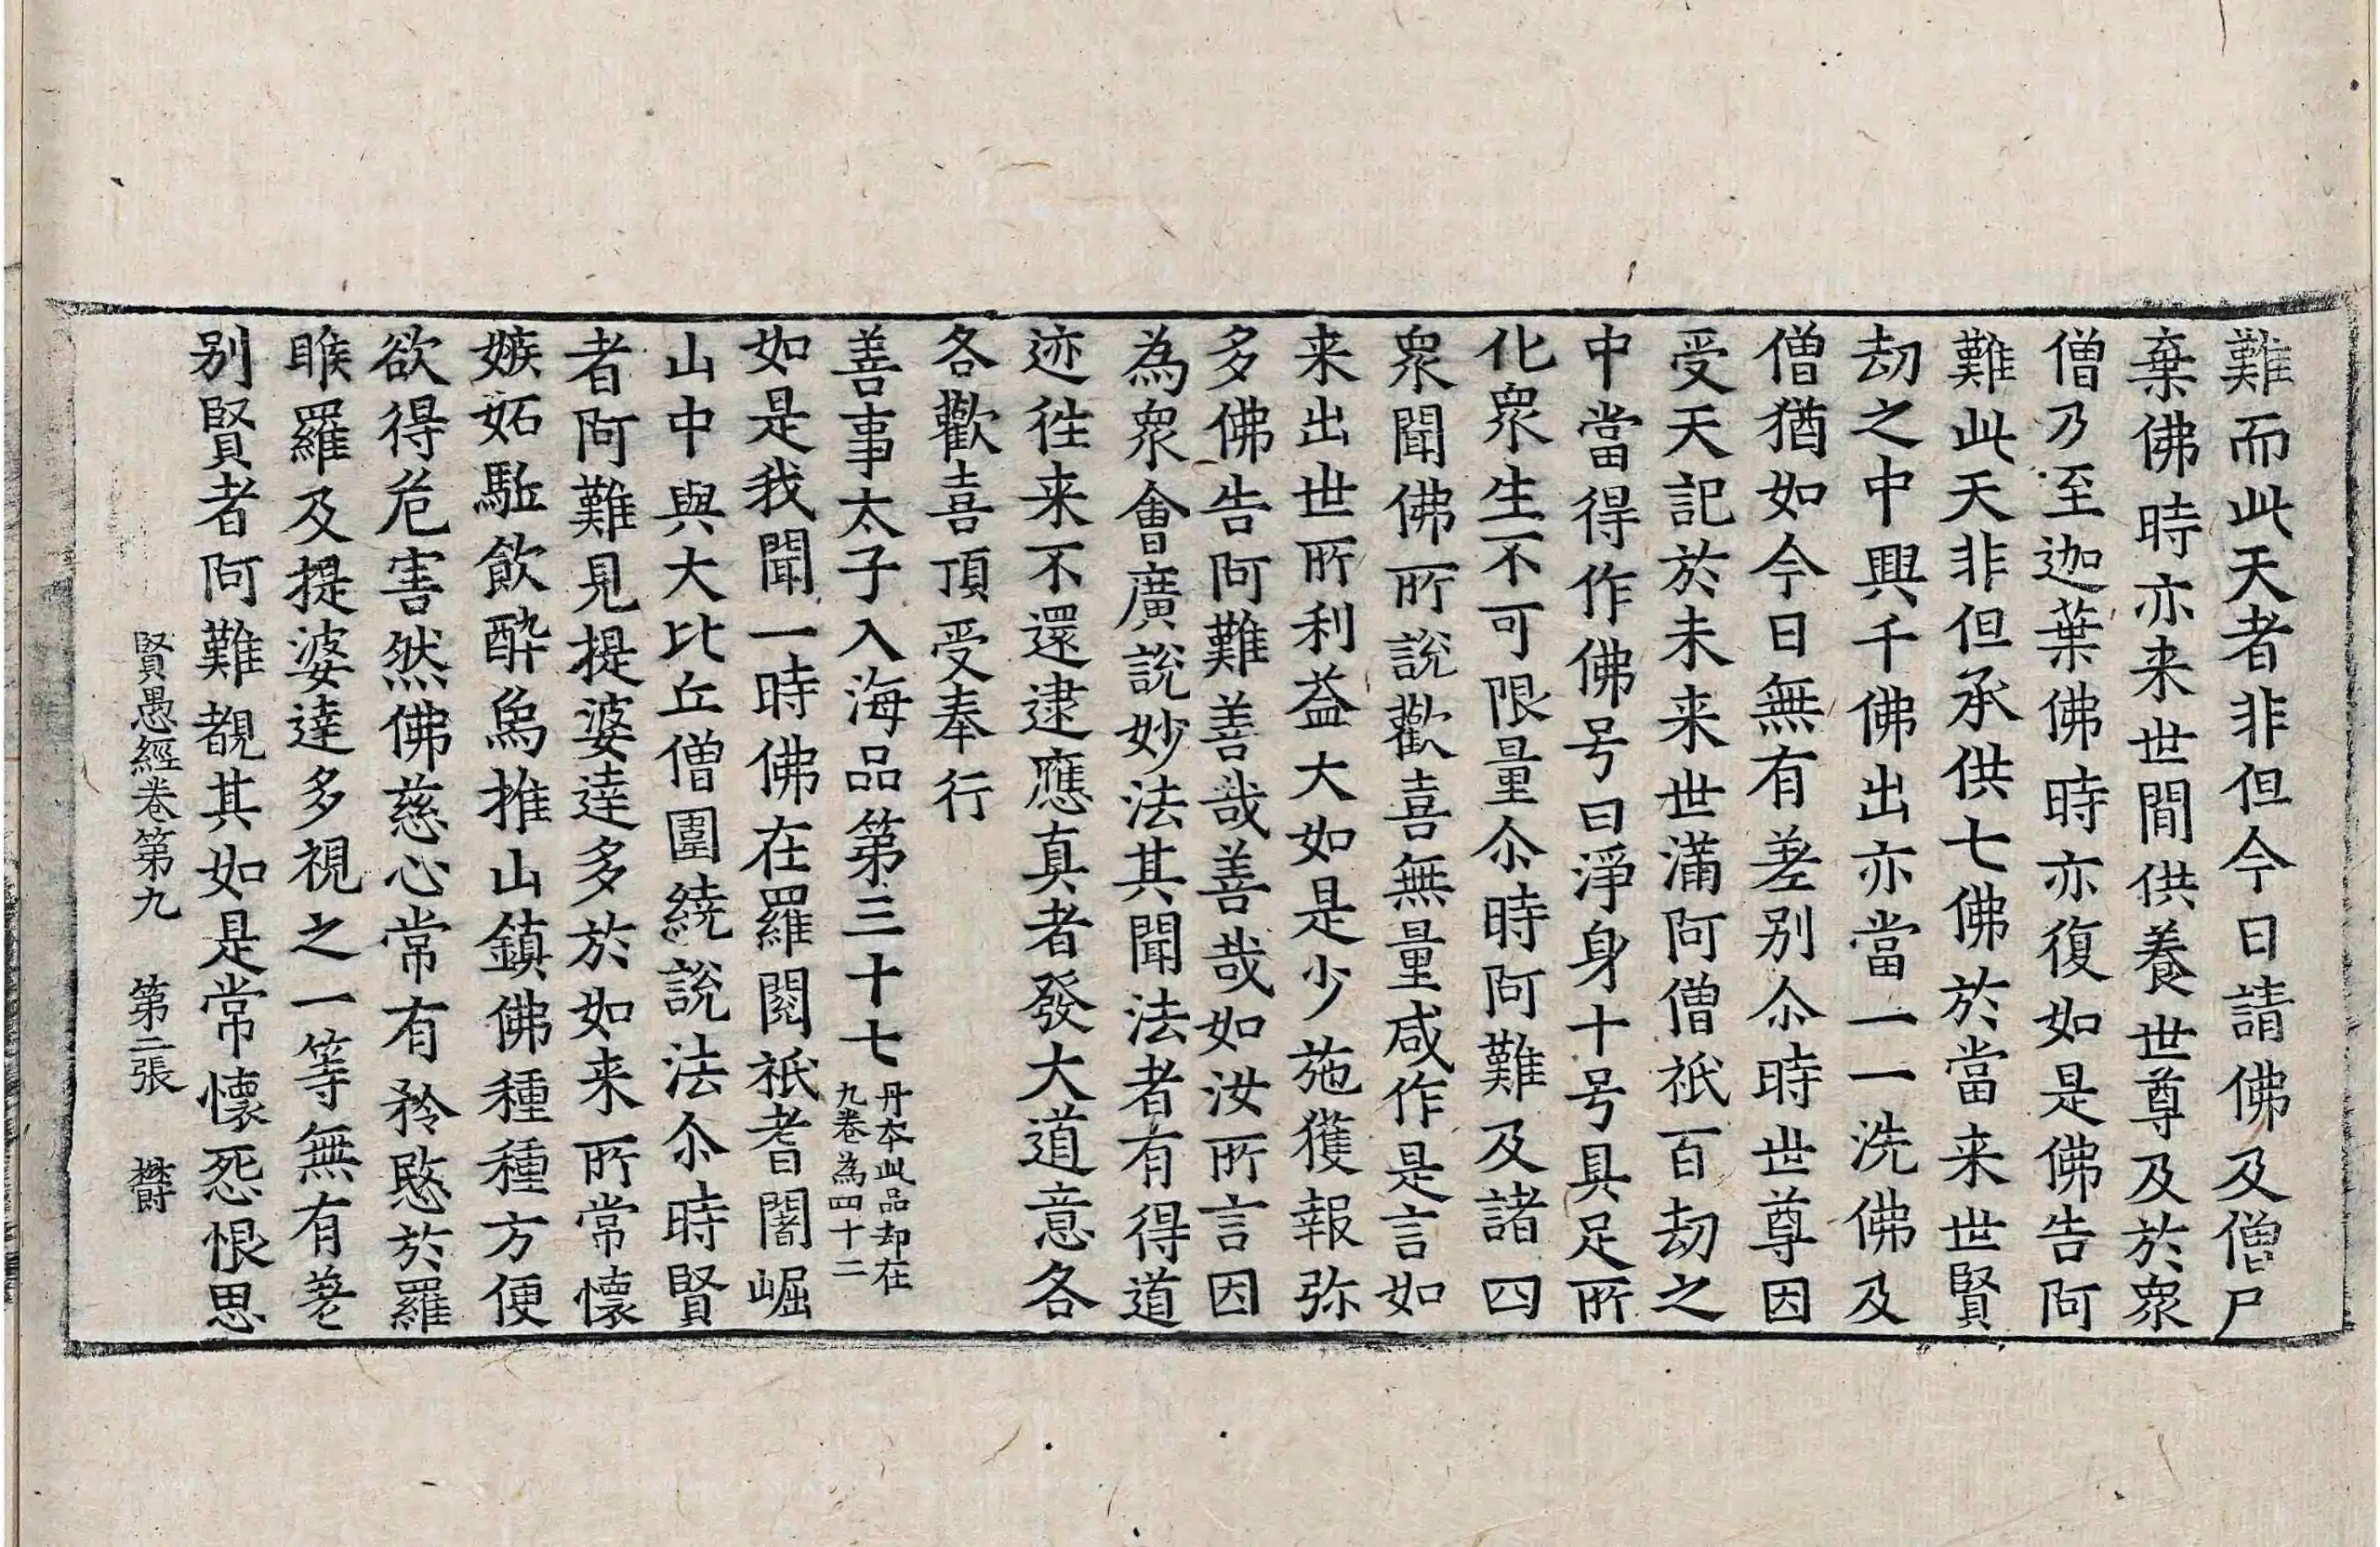 難而此天者非但今日請佛及僧尸
棄佛時亦来世間供養世尊及於衆
僧乃至迦葉佛時亦復如是佛告阿
難此天非但承供七佛於當来世賢
劫之中興千佛出亦當一一洗佛及
僧猶如今日無有差别尒時世尊因
受天記於未来世滿阿僧祇百劫之
中當得作佛号曰淨身十号具足所
化衆生不可限量尒時阿難及諸四
衆聞佛所說歡喜無量咸作是言如
来出世所利益大如是少施獲報弥
多佛告阿難善哉善哉如汝所言因
為衆會廣說妙法其聞法者有得道
迹徃来不還逮應真者發大道意各
各歡喜頂受奉行
善事太子入海品第三十七丹本此品却在
九卷為四十二
如是我聞一時佛在羅閱祇耆闍崛
山中與大比丘僧圍繞說法尒時賢
者阿難見提婆達多於如来所常懷
嫉妬駈飲酔象推山鎮佛種種方便
欲得危害然佛慈心常有矜愍於羅
睺羅及提婆達多視之一等無有差
别賢者阿難覩其如是常懷怨恨思
賢愚經卷第九　第二張　欝